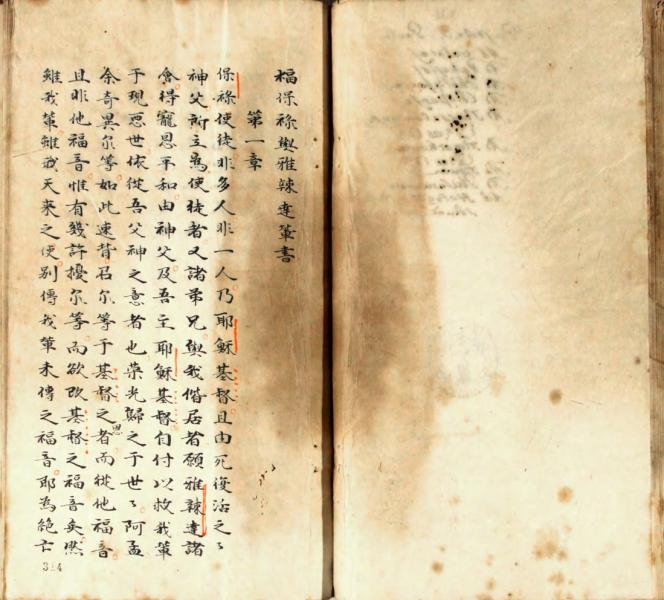 福保祿與雅辣達輩書
第一章
保祿使徒非多人非一人乃耶穌基督且由死復活之々
神父所立為使徒者又諸弟兄與我偕居者願雅辣達諸
會得寵恩平和由神父及吾主耶穌基督自付以救我輩
于現惡世依從吾父神之意者也榮光歸之于世々阿孟
余奇異尔等如此速背召尔等于基督之恩者而從他福音
且非他福音惟有幾許擾尔等而欲改基督之福音矣然
雖我輩雖或天來之使別傳我輩未傳之福音耶為絕亡